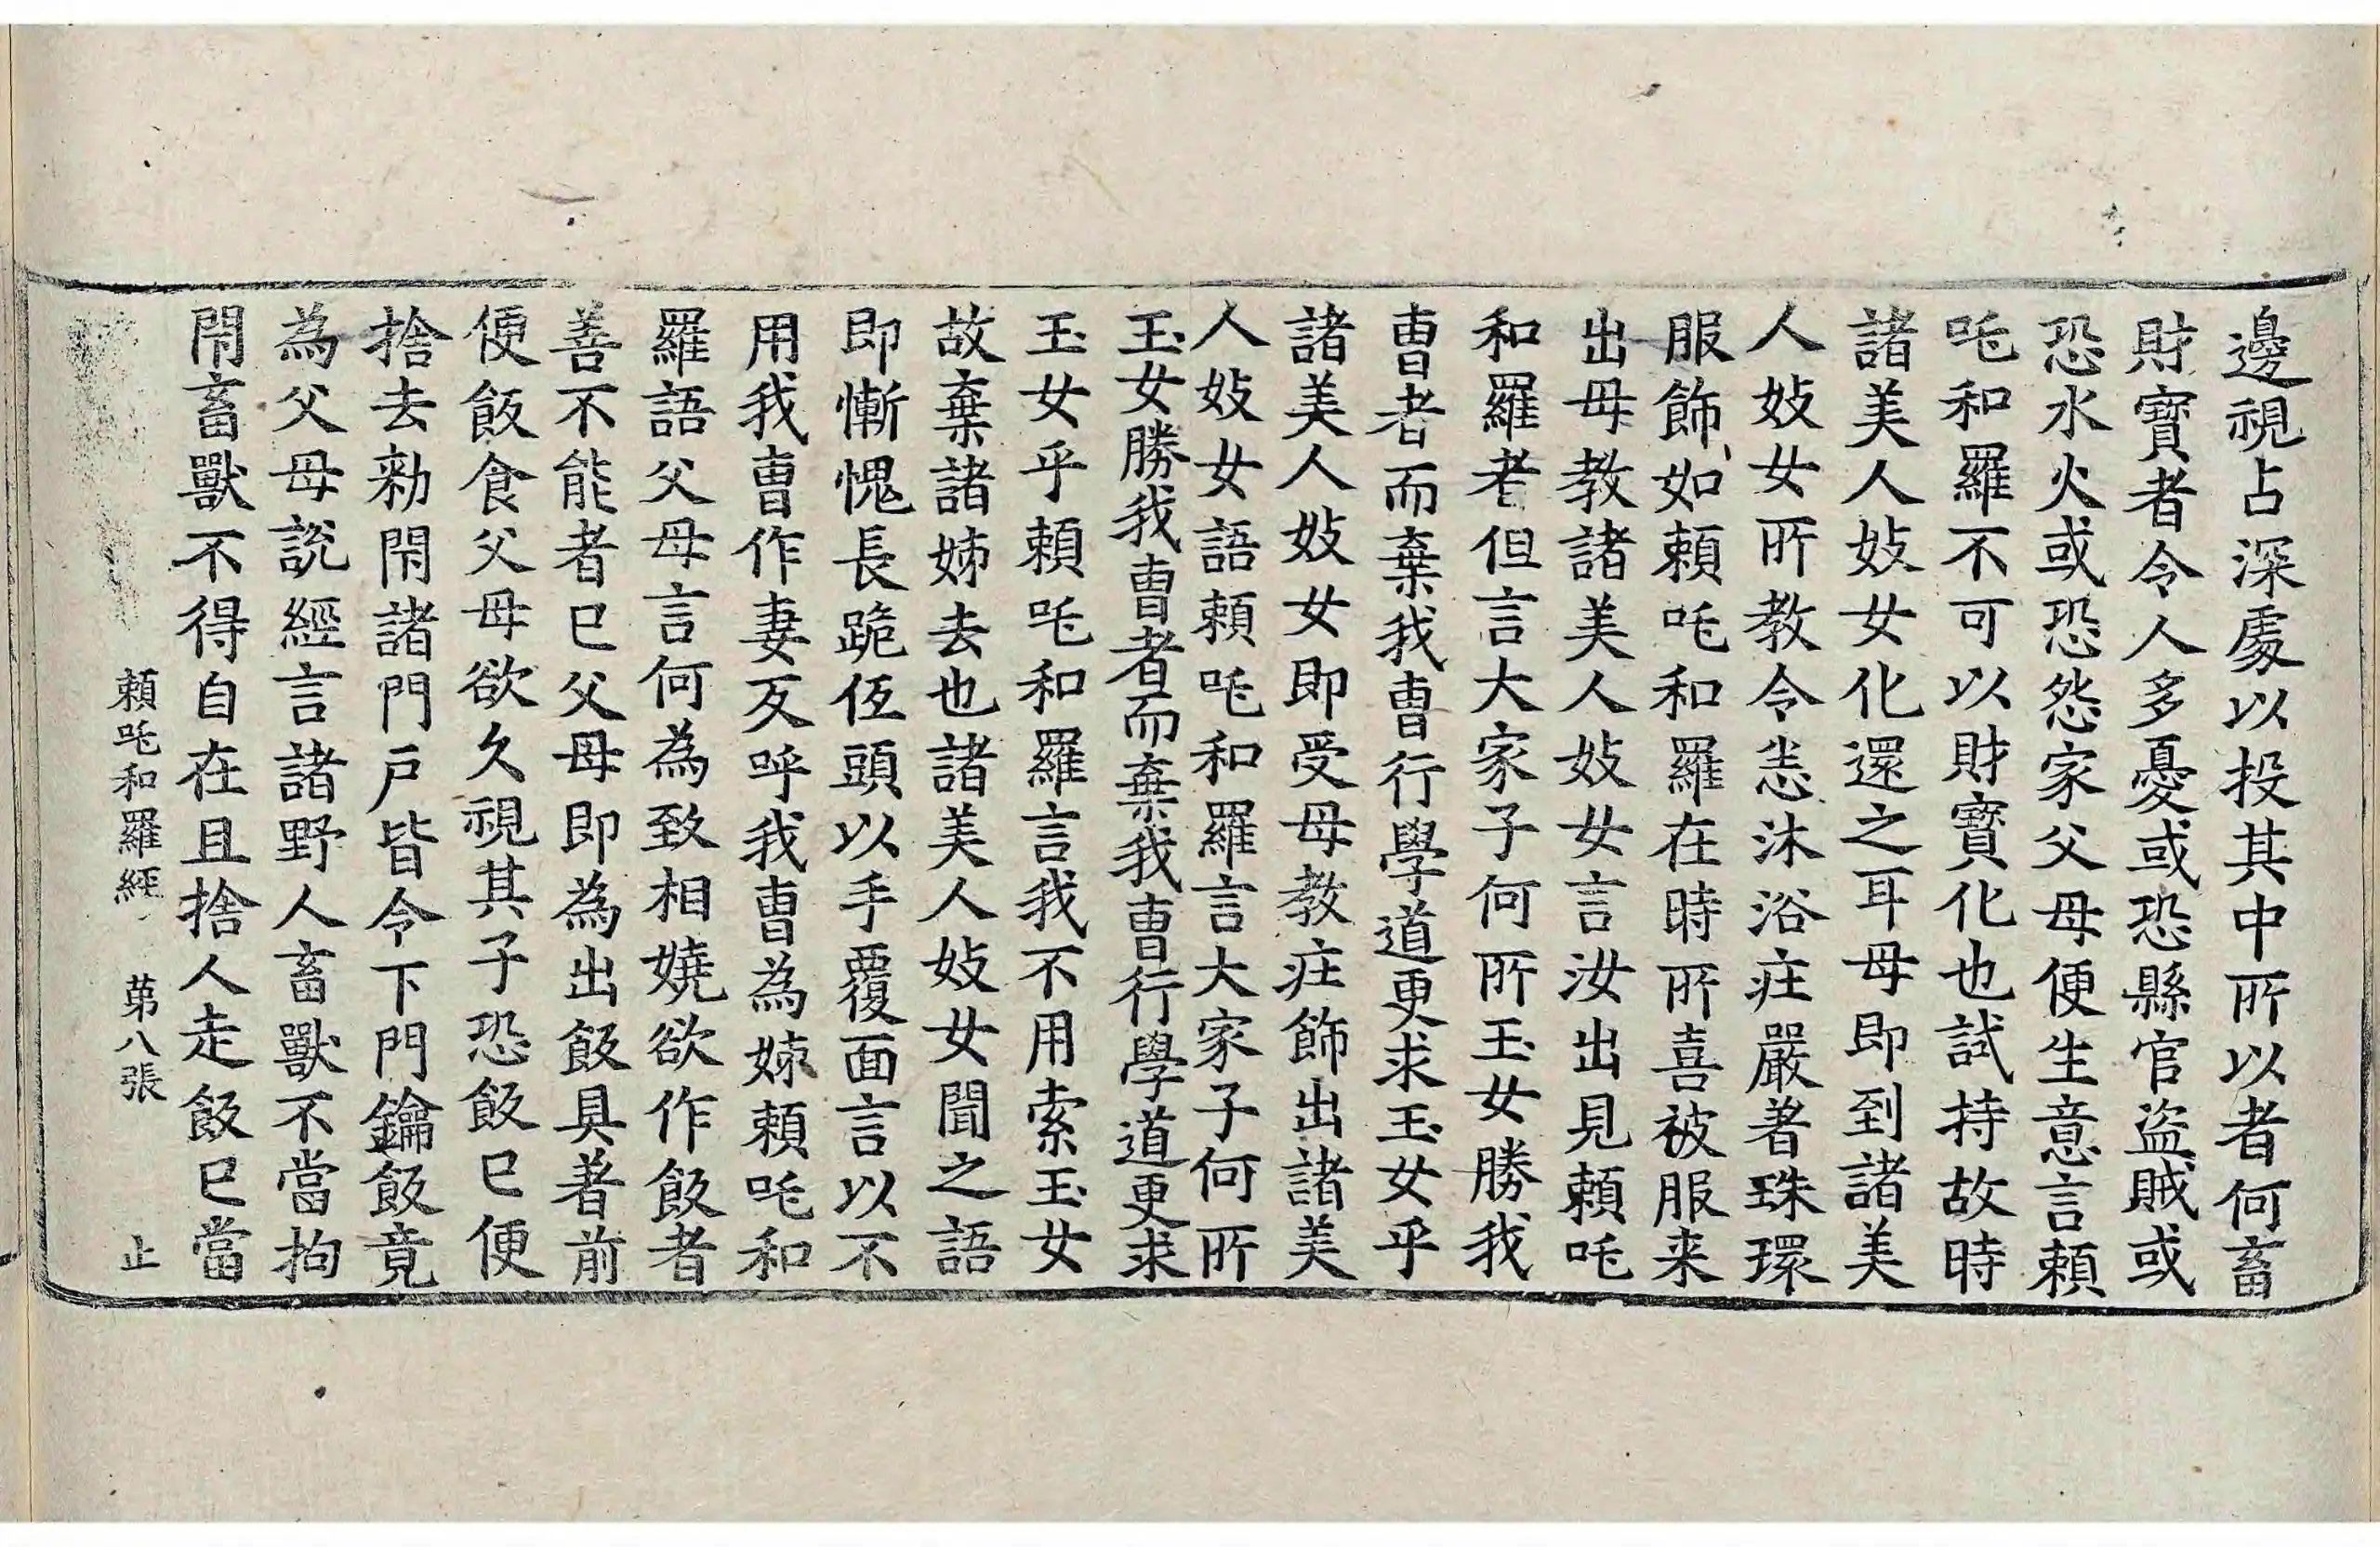 邊視占深處以投其中所以者何畜
財寶者令人多憂或恐縣官盜賊或
恐水火或恐怨家父母便生意言賴
吒和羅不可以財寶化也試持故時
諸美人妓女化還之耳母即到諸美
人妓女所教令恙沐浴莊嚴著珠環
服飾如賴吒和羅在時所喜被服来
出母教諸美人妓女言汝出見賴吒
和羅者但言大家子何所玉女勝我
曺者而棄我曺行學道更求玉女乎
諸美人妓女即受母教莊飾出諸美
人妓女語賴吒和羅言大家子何所
玉女勝我曺者而棄我曺行學道更求
玉女乎賴吒和羅言我不用索玉女
故棄諸姊去也諸美人妓女聞之語
即慚愧長跪伍頭以手覆面言以不
用我曺作妻反呼我曺為姊賴吒和
羅語父母言何為致相嬈欲作飯者
善不能者已父母即為出飯具著前
便飯食父母欲久視其子恐飯已便
捨去勑閇諸門戶皆令下門鑰飯竟
為父母說經言諸野人畜獸不當拘
閇畜獸不得自在且捨人走飯已當
賴吒和羅經 苐八張 止